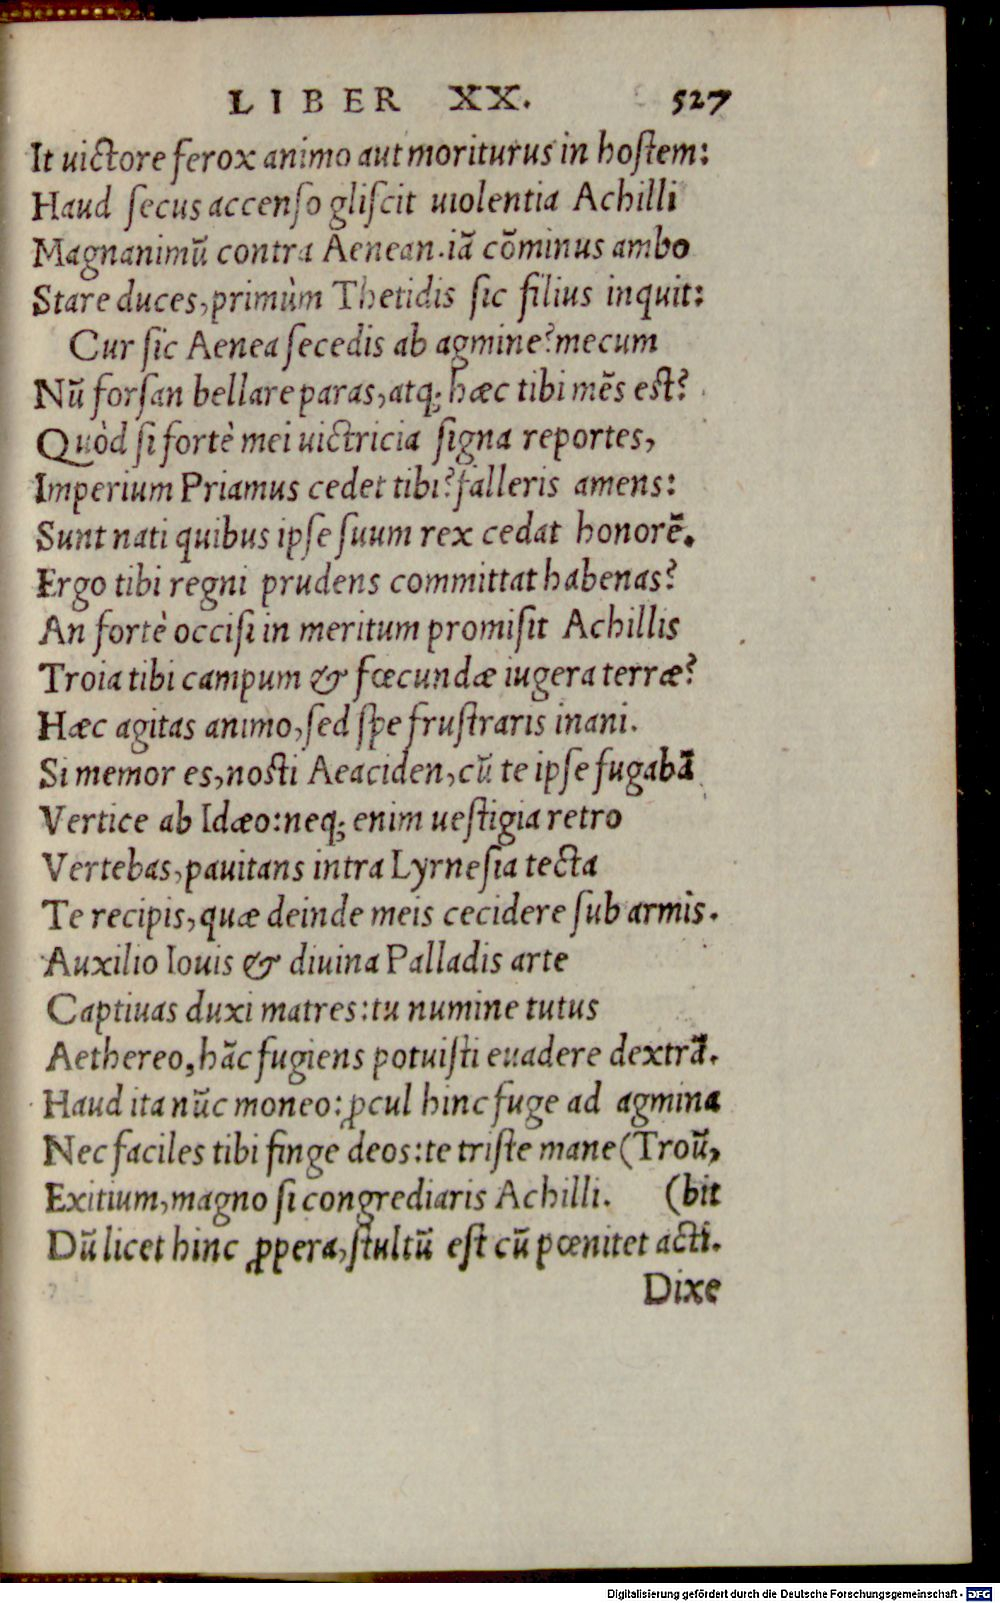 LIBER XX. 527
It uictore ferox animo aut moriturus in hoſtem:
Haud ſecus accenſo gliſcit uiolentia Achilli
Magnanimũ contra Aenean.iã cõminus ambo
Stare duces,primùm Thetidis ſic filius inquit:
Cur ſic Aenea ſecedis ab agmine?mecum
Nũ forſan bellare paras,atq; hæc tibi mẽs eſt?
Quòd ſi fortè mei uictricia ſigna reportes,
Imperium Priamus cedet tibi?falleris amens:
Sunt nati quibus ipſe ſuum rex cedat honorẽ.
Ergo tibi regni prudens committat habenas?
An fortè occiſi in meritum promiſit Achillis
Troia tibi campum & fœcundæ iugera terræ?
Hæc agitas animo,ſed ſpe fruſtraris inani.
Si memor es,noſti Aeaciden,cũ te ipſe fugabã
Vertice ab Idæo:neq; enim ueſtigia retro
Vertebas,pauitans intra Lyrneſia tecta
Te recipis,quæ deinde meis cecidere ſub armis.
Auxilio Iouis & diuina Palladis arte
Captiuas duxi matres:tu numine tutus
Aethereo,hãc fugiens potuiſti euadere dextrã.
Haud ita nũc moneo:ꝓcul hinc fuge ad agmina
Nec faciles tibi finge deos:te triſte mane (Troũ,
Exitium,magno ſi congrediaris Achilli. (bit
Dũ licet hinc ꝓpera,ſtultũ eſt cũ pœnitet acti.
Dixe
Digitalisierung gefördert durch die Deutsche Forschungsgemeinschaft - DFG